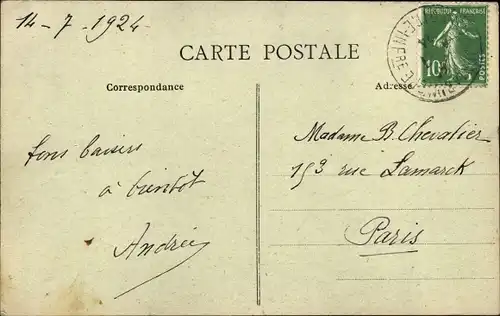 14-7-1924
CARTE POSTALE
REPUBLIQUE FRANÇAISE
10
POSTES
Correspondance
Adresse
Madame B. Chevalier
153 rue Lamarck
Paris
bons baisers
à bientôt
Andrée